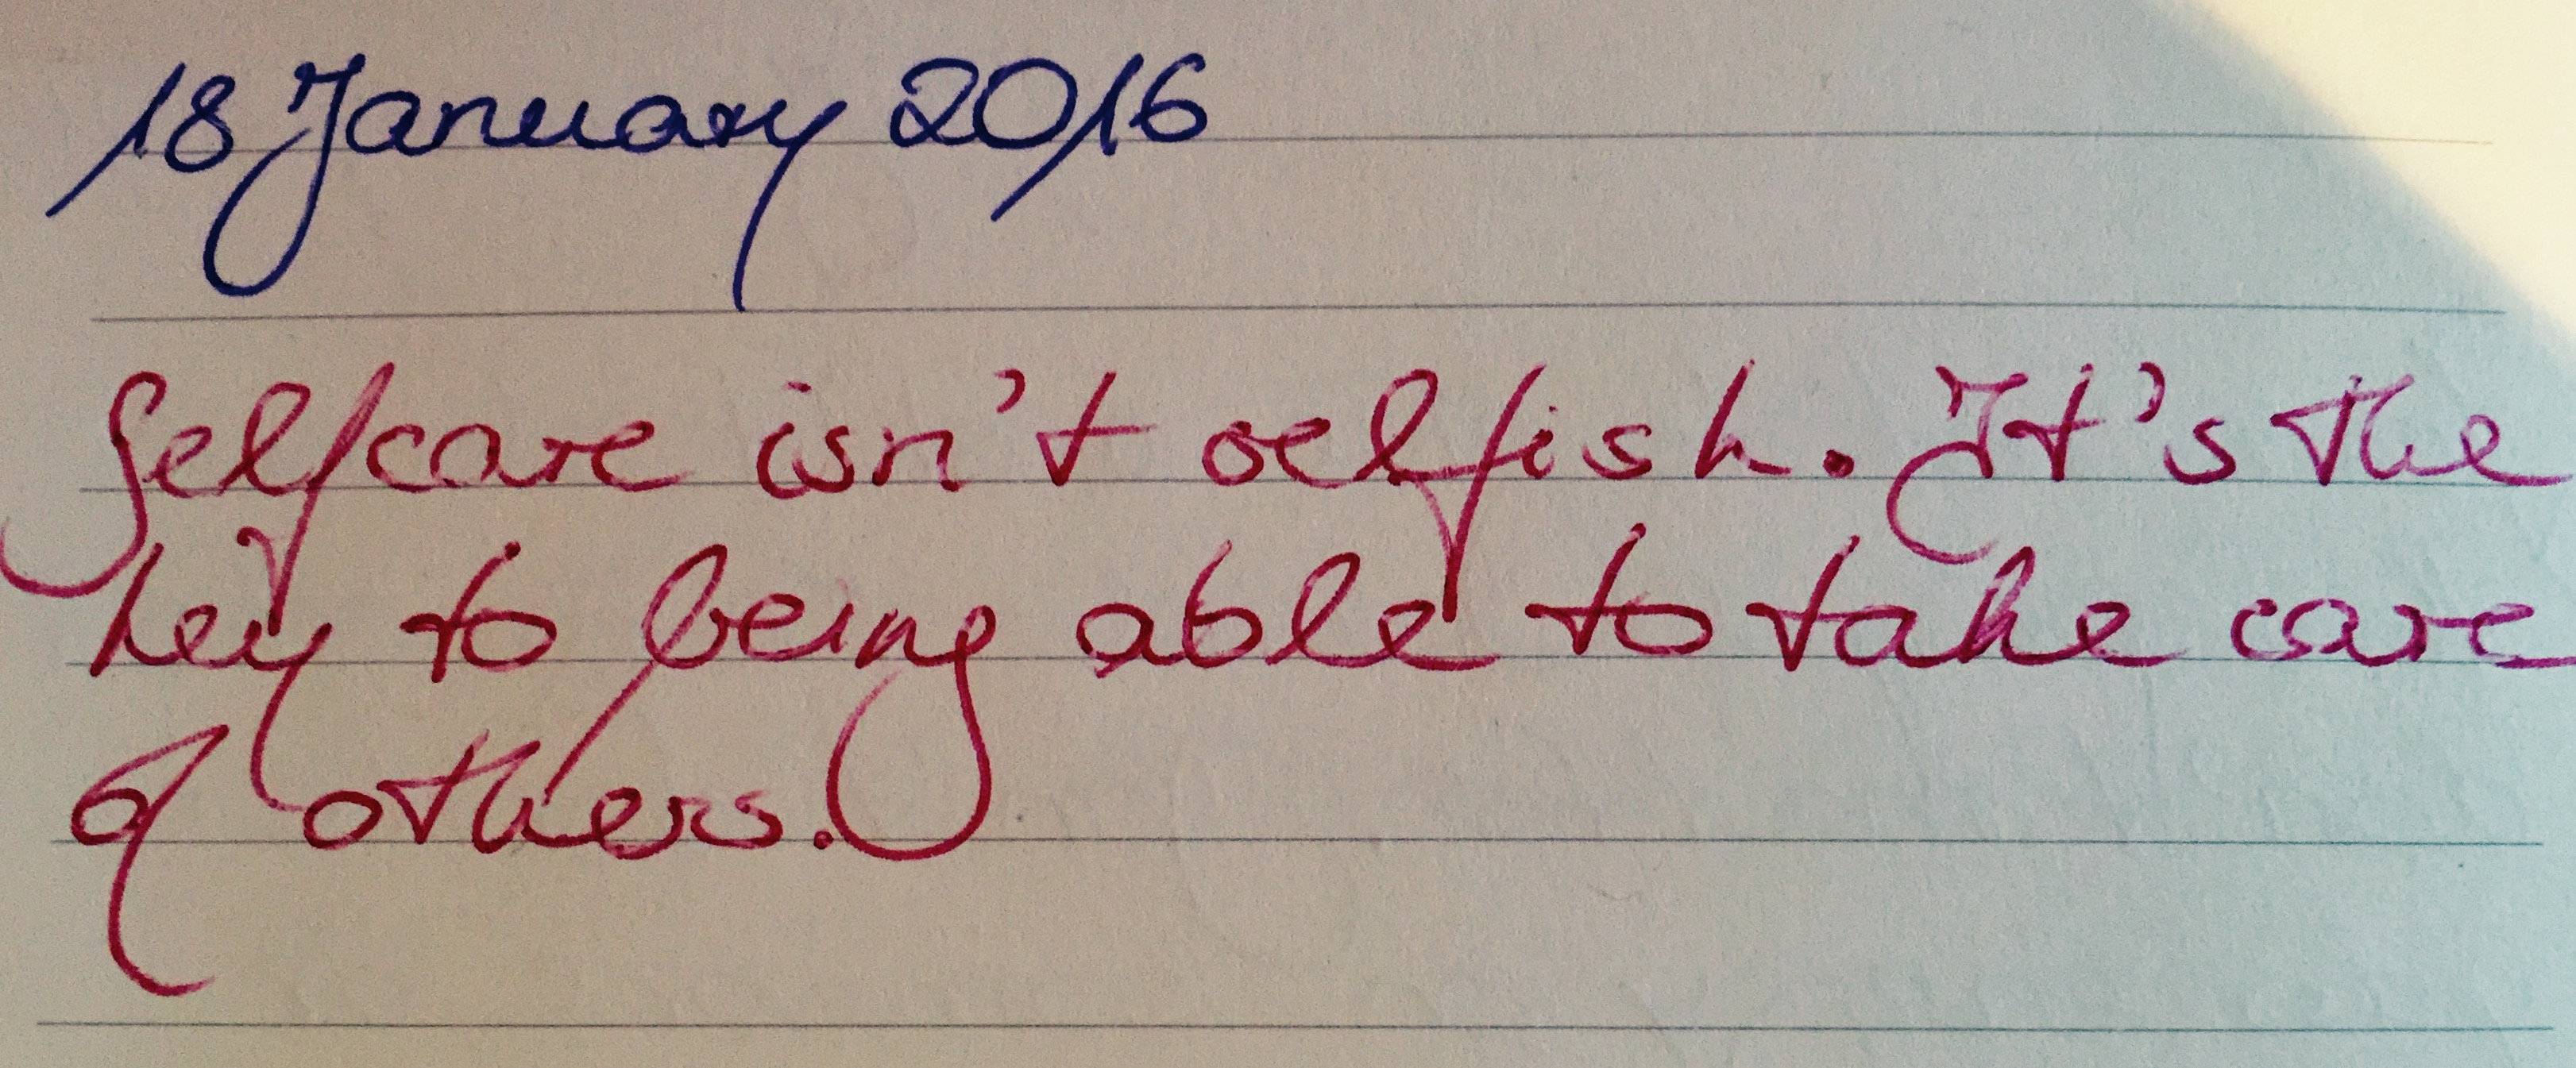 18 January 2016
Selfcare isn't selfish. It's the
key to being able to take care
of others.